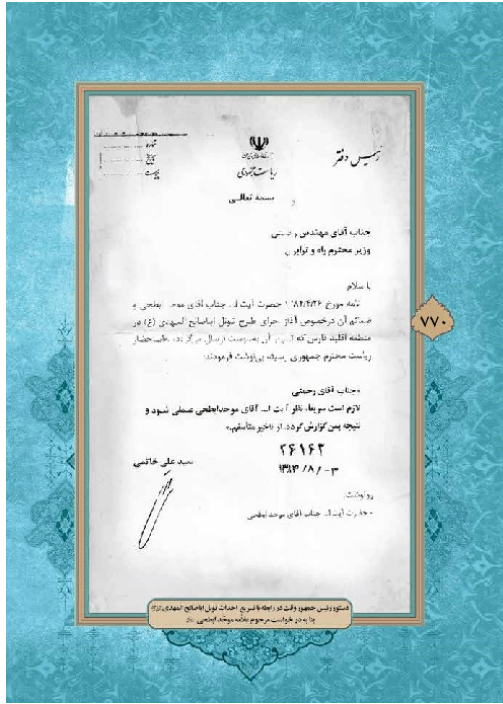 رئیس دفتر
ریاست جمهوری
شماره
تاریخ
پیوست
بسمه تعالی
جناب آقای مهندس رحمتی
وزیر محترم راه و ترابری
با سلام
نامه مورخ ۸۲/۴/۲۶ حضرت آیت اله جناب آقای موحد ابطحی و
ضمائم آن درخصوص آغاز اجرای طرح تونل اباصالح المهدی (ع) در
منطقه اقلید فارس که تصویر آن به پیوست ارسال می‌گردد، به استحضار
ریاست محترم جمهوری رسید، پی‌نوشت فرمودند:
«جناب آقای رحمتی
لازم است سریعاً، نظر آیت اله آقای موحدابطحی عملی شود و
نتیجه بمن گزارش گردد. از تاخیر متأسفم.»
۲۶۱۶۲
۱۳۸۲/۸/-۳
سید علی خاتمی
رونوشت:
- حضرت آیت اله جناب آقای موحد ابطحی
۷۷۰
دستور رئیس جمهور وقت در رابطه با تسریع احداث تونل اباصالح المهدی
بنا به درخواست مرحوم علامه موحد ابطحی